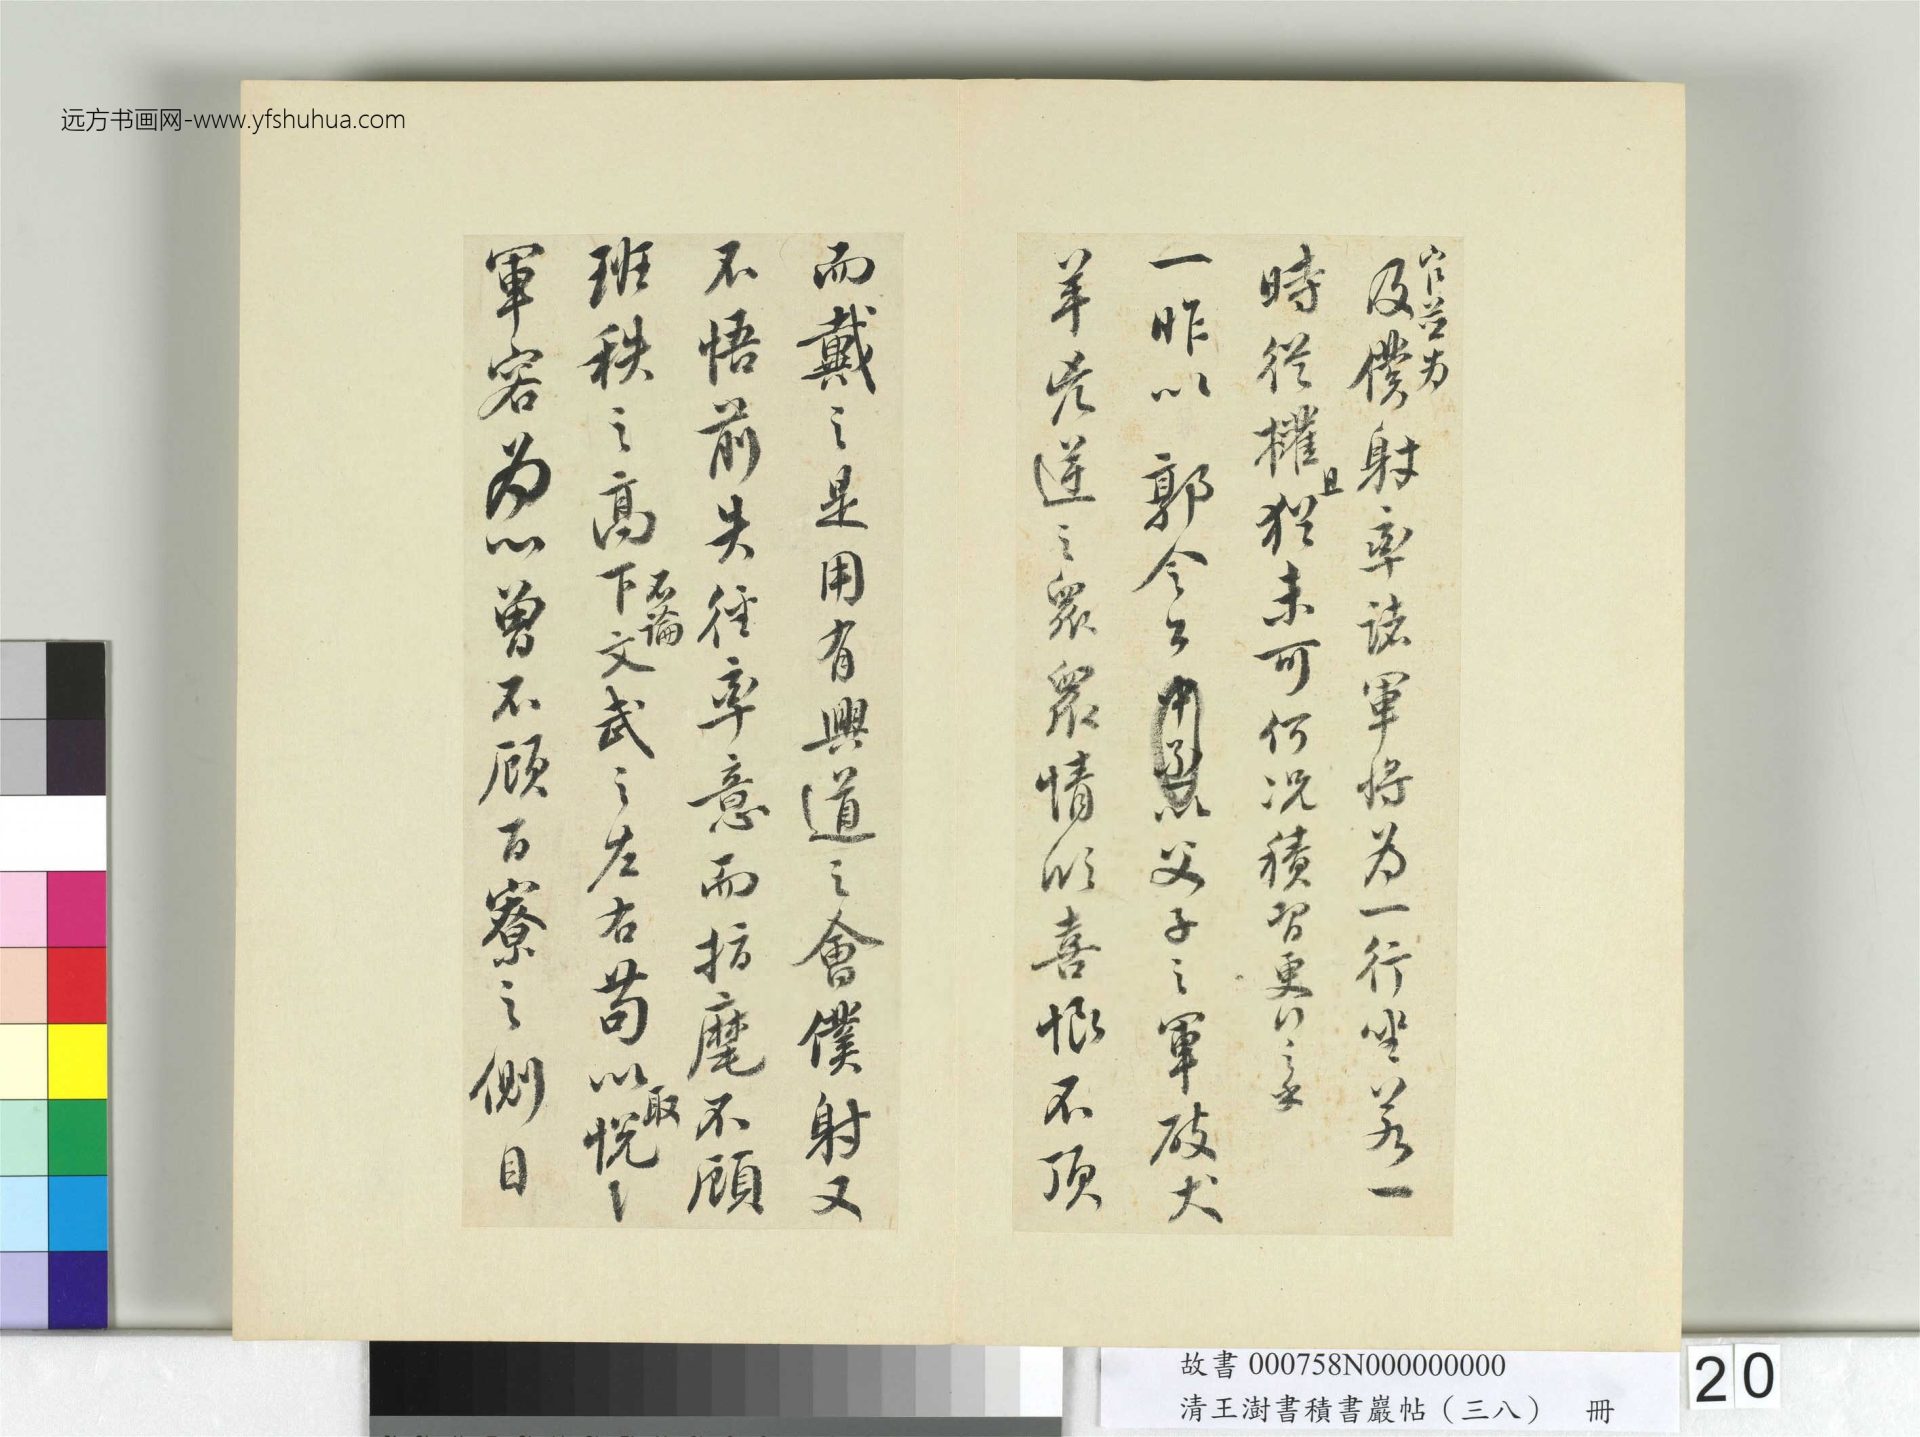 官並为
及僕射率諸軍將為一行坐若一
時從權且猶未可何況積習更行之乎
一昨以郭令公以父子之軍破犬
羊兇逆之眾眾情欣喜恨不頂
而戴之是用有興道之會僕射又
不悟前失徑率意而指麾不顧
班秩之高下不論文武之左右苟以取悅
軍容為心曾不顧百寮之側目
远方书画网-www.yfshuhua.com
故書 000758N000000000
清王澍書積書巖帖（三八） 冊
20